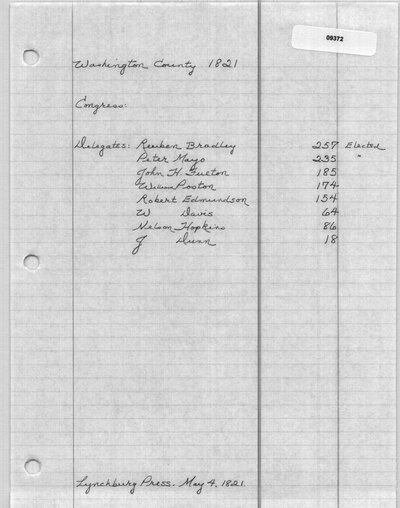 09372
Washington County 1821
Congress:
Delegates: Reuben Bradley 257 Elected
Peter Mayo 235 "
John H. Fulton 185
William Poston 174
Robert Edmundson 154
W Davis 64
Nelson Hopkins 86
J Dunn 18
Lynchburg Press. May 4, 1821